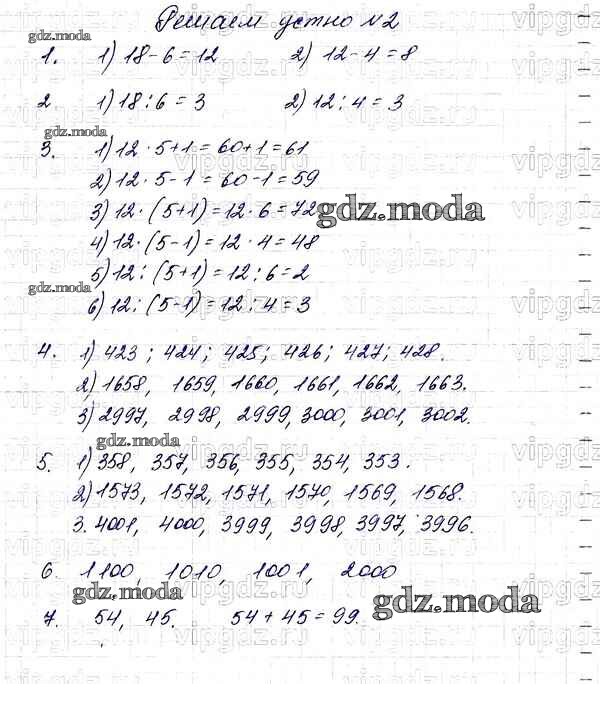 Решаем устно №2
gdz.moda
1. 1) 18-6=12 2) 12-4=8
2 1) 18:6=3 2) 12:4=3
gdz.moda
3. 1) 12·5+1=60+1=61
2) 12·5-1=60-1=59
3) 12·(5+1)=12·6=72
gdz.moda
4) 12·(5-1)=12·4=48
5) 12:(5+1)=12:6=2
gdz.moda
6) 12:(5-1)=12:4=3
4. 1) 423; 424; 425; 426; 427; 428.
2) 1658, 1659, 1660, 1661, 1662, 1663.
3) 2997, 2998, 2999, 3000, 3001, 3002.
gdz.moda
5. 1) 358, 357, 356, 355, 354, 353.
2) 1573, 1572, 1571, 1570, 1569, 1568.
3. 4001, 4000, 3999, 3998, 3997, 3996.
6. 1100, 1010, 1001, 2000
gdz.moda
gdz.moda
7. 54, 45. 54+45=99.